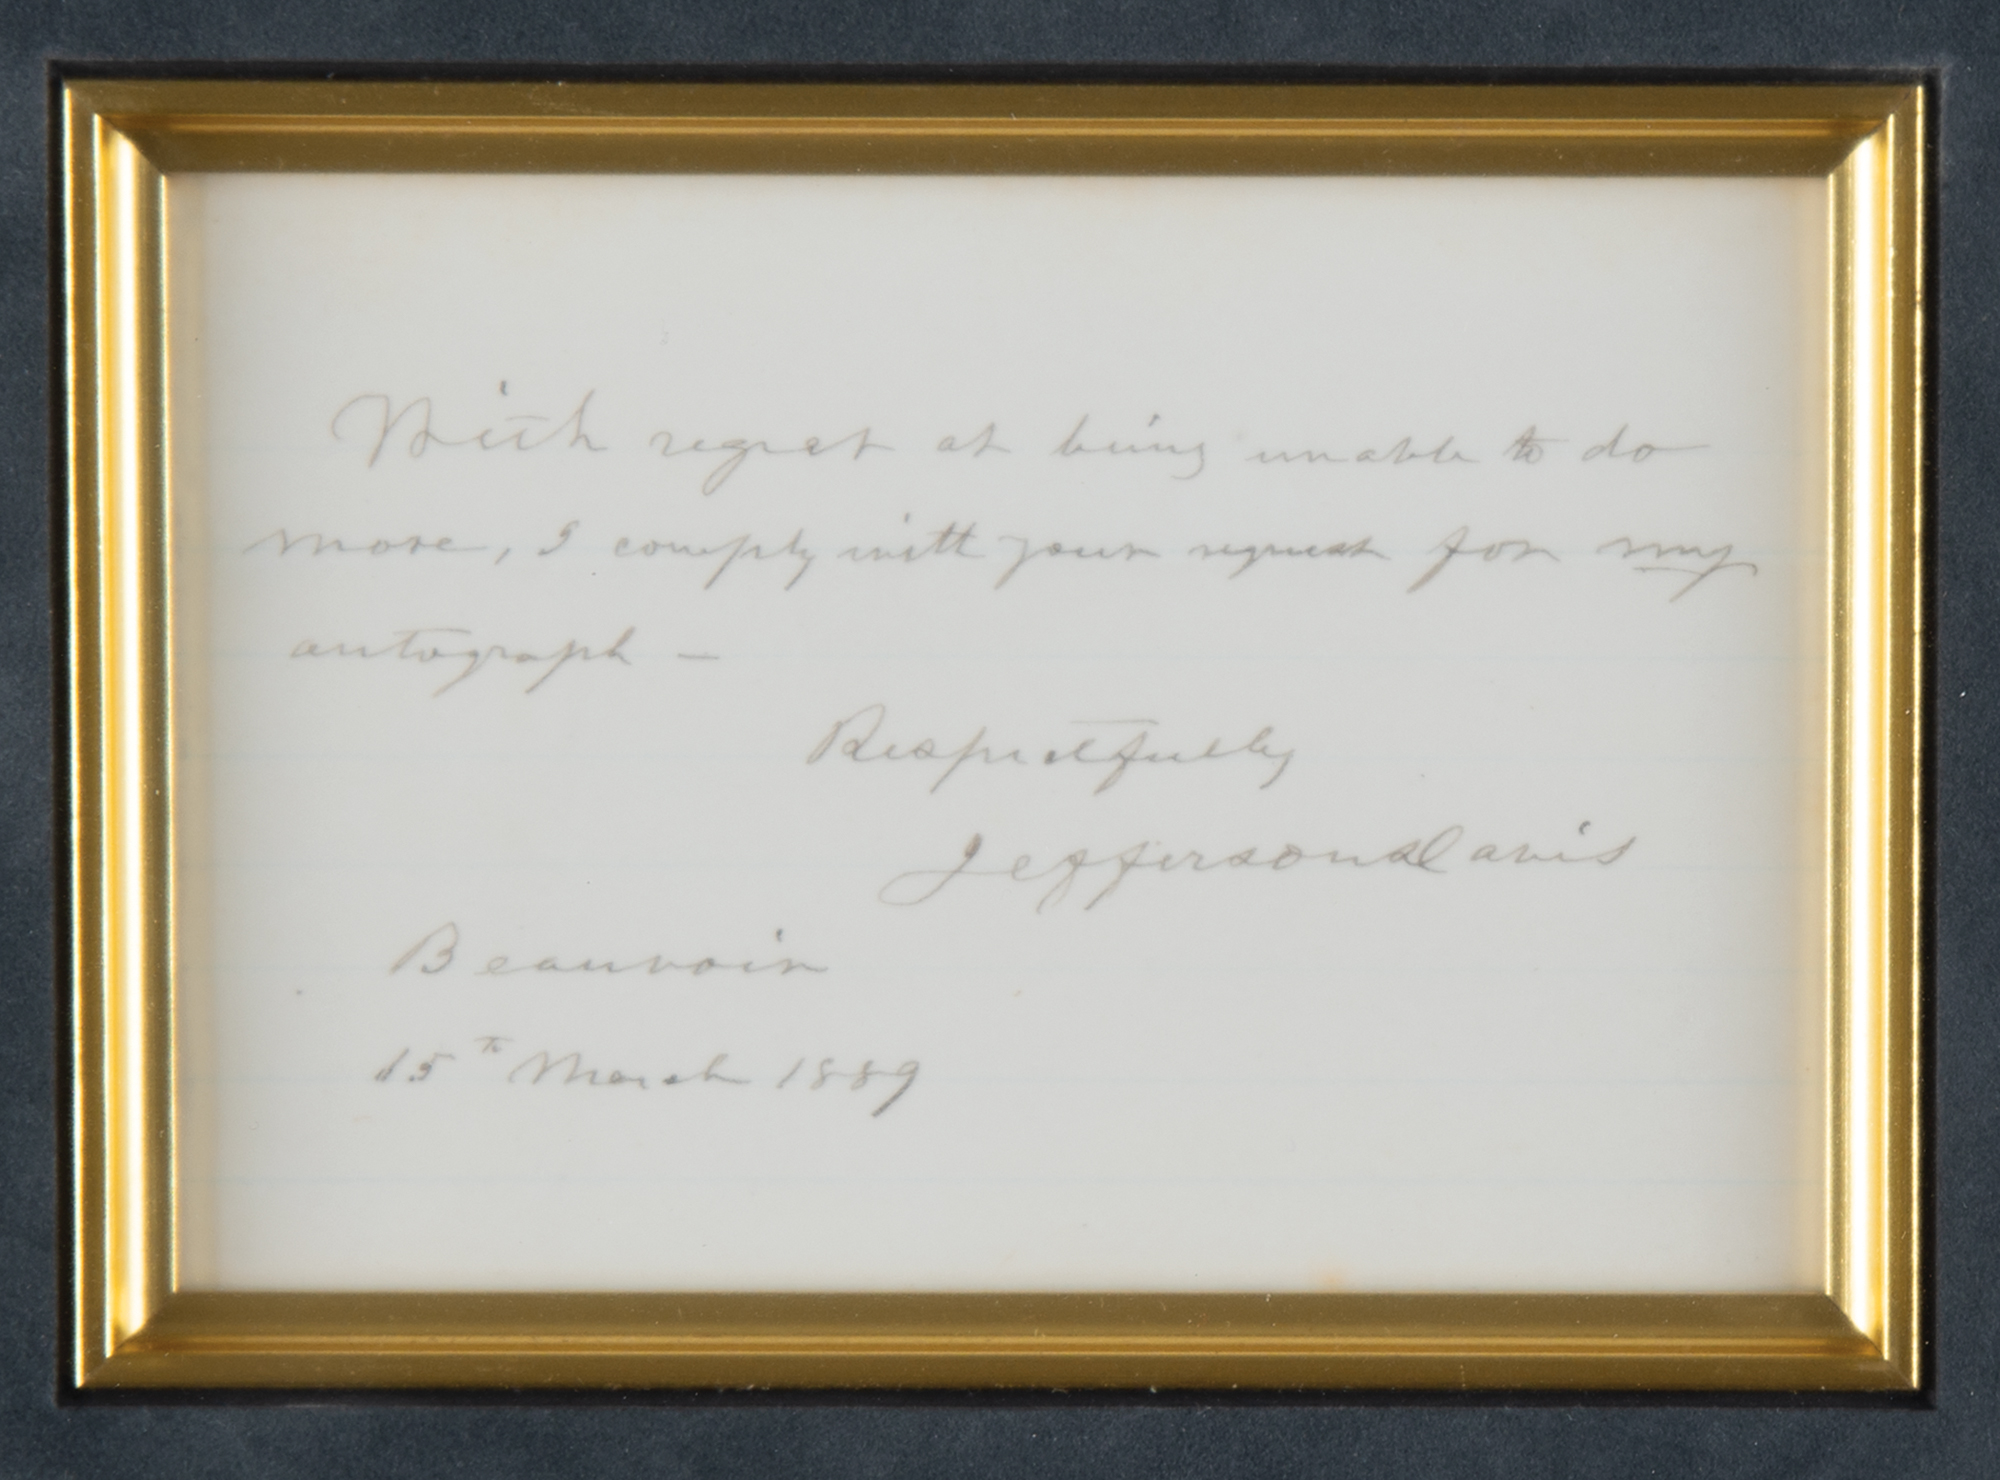 With regret at being unable to do
more, I comply with your request for my
autograph –
Respectfully
Jefferson Davis
Beauvoir
15th March 1889